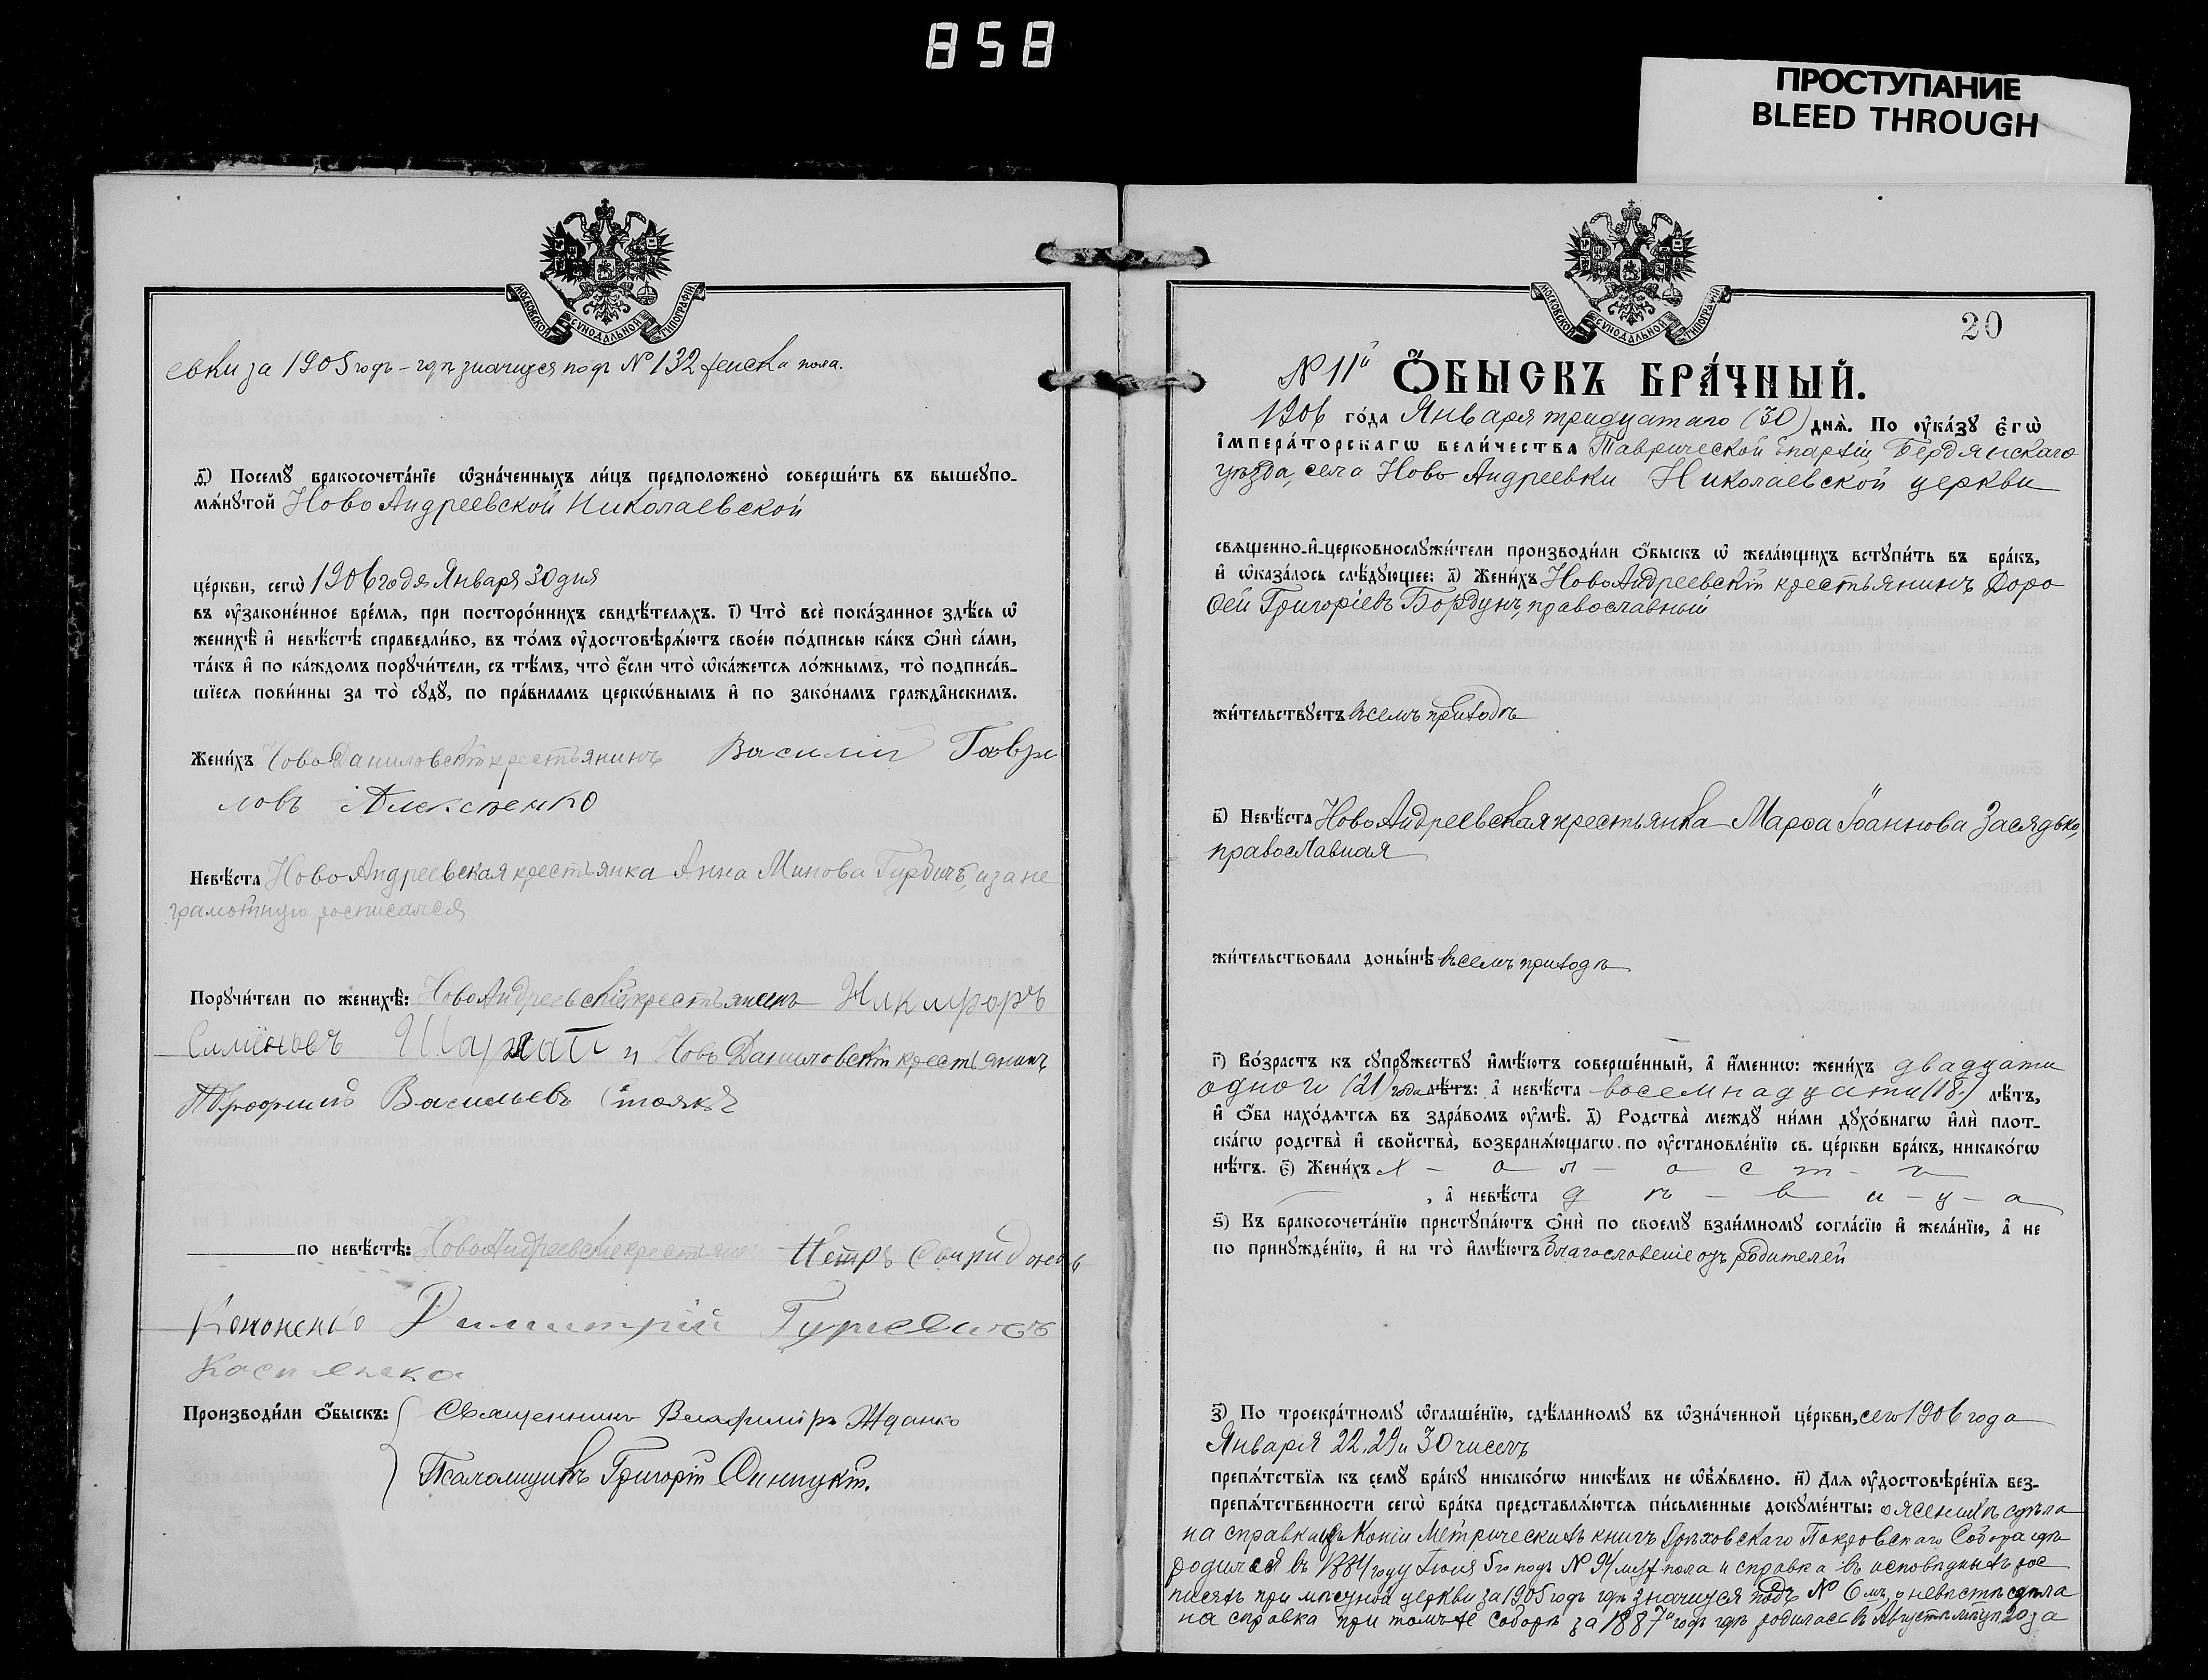 858
ПРОСТУПАНИЕ
BLEED THROUGH
МОСКОВСКОЙ СѴНОДАЛЬНОЙ ТИПОГРАФІИ
евки за 1905 годъ – гдѣ значится подъ № 132 женска пола.
д҃) Посемꙋ̀ бракосочета́нїе ѡ҆зна́ченныхъ ли́цъ предположено̀ соверши́ть въ вышеꙋпо-
мѧ́нꙋтой Ново Андреевской Николаевской
це́ркви, сегѡ̀ 1906 года Января 30 дня
въ ᲂу҆законе́нное вре́мѧ, при посторо́ннихъ свидѣ́телѧхъ. і҃) Что̀ всѐ пока́занное здѣ́сь ѡ҆
женихѣ̀ и҆ невѣ́стѣ справедли́во, въ то́мъ ᲂу҆достовѣрѧ́ютъ свое́ю по́дписью ка́къ ѻ҆нѝ са́ми,
та́къ и҆ по ка́ждомъ порꙋчи́тели, съ тѣ́мъ, что̀ є҆́сли что̀ ѡ҆ка́жетсѧ ло́жнымъ, то̀ подписа́в-
шїесѧ пови́нны за то̀ сꙋдꙋ̀, по пра́виламъ церкѡ́внымъ и҆ по зако́намъ гражда́нскимъ.
Жени́хъ Ново Даниловскій крестьянинъ Василій Гаври
ловъ Алексѣенко
Невѣ́ста Ново Андреевская крестьянка Анна Минова Гурбичъ, и за не
грамотную росписался
Порꙋчи́тели по женихѣ̀: Ново Андреевскій крестьянинъ Никифоръ
Сименовъ и Ново Даниловскій крестьянинъ
Трофимъ Васильевъ Стоякъ
по невѣ́стѣ: Ново Андреевские крестьяне Петръ Свиридоновъ
Кононенко Димитрій
Касьянека
Производи́ли ѻ҆́быскъ: Священникъ Владиміръ Жданко
Псаломщикъ Григорій
МОСКОВСКОЙ СѴНОДАЛЬНОЙ ТИПОГРАФІИ
20
№ 11й Ѻ҆́БЫСКЪ БРА́ЧНЫЙ.
1906 го́да Января тридцатаго (30) днѧ̀. По ᲂу҆ка́зꙋ є҆гѡ̀
і҆мпера́торскагѡ вели́чества Таврической Епархіи, Бердянскаго
уѣзда, села Ново Андреевки Николаевской церкви
свѧщенно-и҆-церковнослꙋжи́тели производи́ли ѻ҆́быскъ ѡ҆ жела́ющихъ встꙋпи́ть въ бра́къ,
и҆ ѡ҆каза́лось слѣ́дꙋющее: а҃) Жени́хъ Ново Андреевскій крестьянинъ Доро
ѳей Григоріевъ Бордунъ, православный
жи́тельствꙋетъ въ семъ приходѣ
в҃) Невѣ́ста Ново Андреевская крестьянка Марѳа Іоаннова Засядько,
православная
жи́тельствовала донынѣ въ семъ приходѣ
г҃) Во́зрастъ къ сꙋпрꙋ́жествꙋ и҆мѣ́ютъ соверше́нный, а҆ и҆́меннѡ: жени́хъ двадцати
одного (21) года лѣ́тъ: а҆ невѣ́ста восемнадцати (18.) лѣ́тъ,
и҆ ѻ҆́ба нахо́дѧтсѧ въ здра́вомъ ᲂу҆мѣ̀. д҃) Родства̀ междꙋ ни́ми дꙋхо́внагѡ и҆лѝ плот-
ска́гѡ родства̀ и҆ свойства̀, возбранѧ́ющагѡ по ᲂу҆становле́нїю св. це́ркви бра́къ, никако́гѡ
нѣ́тъ. є҃) Жени́хъ х – о л – о с т – ъ
, а҆ невѣ́ста д ѣ – в и – ц – а
ѕ҃) Къ бракосочета́нїю пристꙋпа́ютъ ѻ҆нѝ по своемꙋ̀ взаи́мномꙋ согла́сїю и҆ жела́нїю, а҆ не
по принꙋжде́нїю, и҆ на то̀ и҆мѣ́ютъ благословеніе отъ родителей
з҃) По троекра́тномꙋ ѡ҆глаше́нїю, сдѣ́ланномꙋ въ ѡ҆зна́ченной це́ркви, сего 1906 года
Января 22, 29 и 30 чиселъ
препѧ́тствїѧ къ семꙋ̀ бра́кꙋ никако́гѡ никѣ́мъ не ѡ҆б̾ѧ́влено. и҃) Для ᲂу҆достовѣре́нїѧ без-
препѧ́тственности сегѡ̀ бра́ка представлѧ́ютсѧ пи́сьменные докꙋме́нты: о женихѣ сдѣла
на справка изъ Копіи Метрическихъ книгъ Орѣховскаго Покровскаго Собора гдѣ
родился въ 1884 году Іюня 5го подъ № 94 муж пола и справка въ исповѣдныхъ рос
писяхъ при мѣстной церкви за 1905 годъ гдѣ значится подъ № 6мъ, о невѣстѣ сдѣла
на справка при томъ же Соборѣ за 1887й годъ гдѣ родилась въ Августѣ мѣсяцѣ 20 за